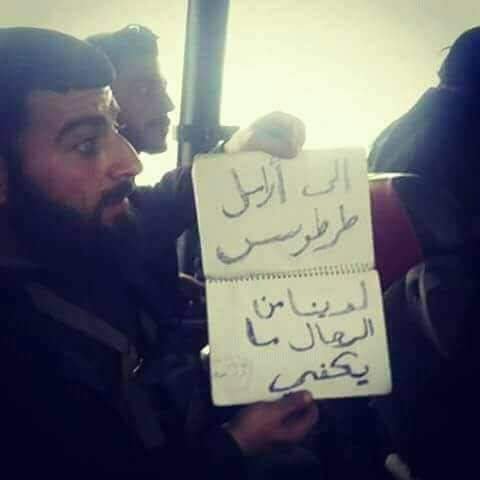 الى أرامل
طرطوس
لدينا من
الرجال ما
يكفي